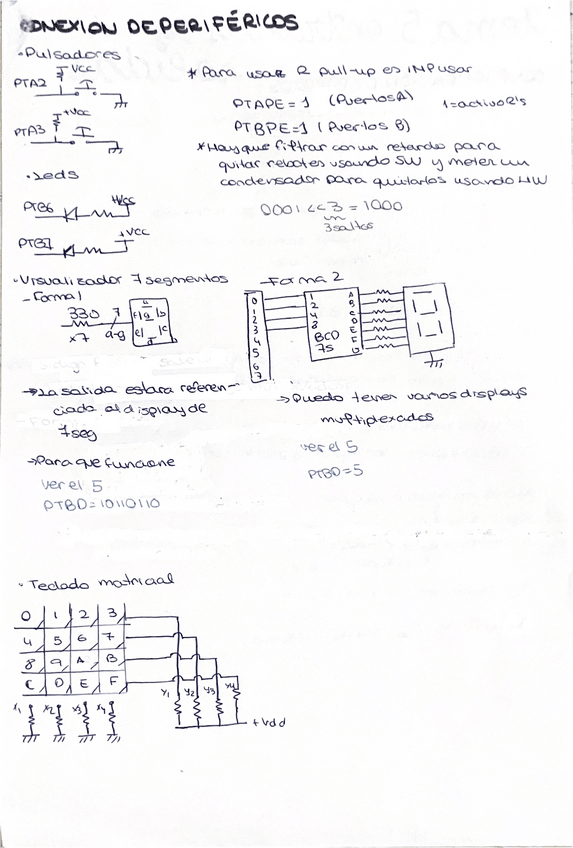 CONEXION DE PERIFÉRICOS
· Pulsadores
+Vcc
PTA2
+Vcc
PTA3
* Para usar R pull-up es
PTAPE = 1 (Puertos A) 1=activo R's
PTBPE=1 (Puertos B)
* Hay que filtrar con un retardo para
quitar rebotes usando SW y meter un
condensador para quitarlos usando HW
0001 << 3 = 1000
3 saltos
· Leds
PTB6 +Vcc
PTB7 +Vcc
· Visualizador 7 segmentos
- Forma 1
330 7
x7 a-g
a
f g b
e c
d
→ La salida estara referen-
ciada al display de
7seg
→ Para que funcione
ver el 5
PTBD=10110110
- Forma 2
0 1 A
1 2 B
2 4 C
3 8 D
4 BCD E
5 7S F
6
7
→ Puedo tener varios displays
multiplexados
ver el 5
PTBD=5
· Teclado matricial
0 1 2 3
4 5 6 7
8 9 A B
C D E F
x1 x2 x3 x4
y1 y2 y3 y4
+Vdd